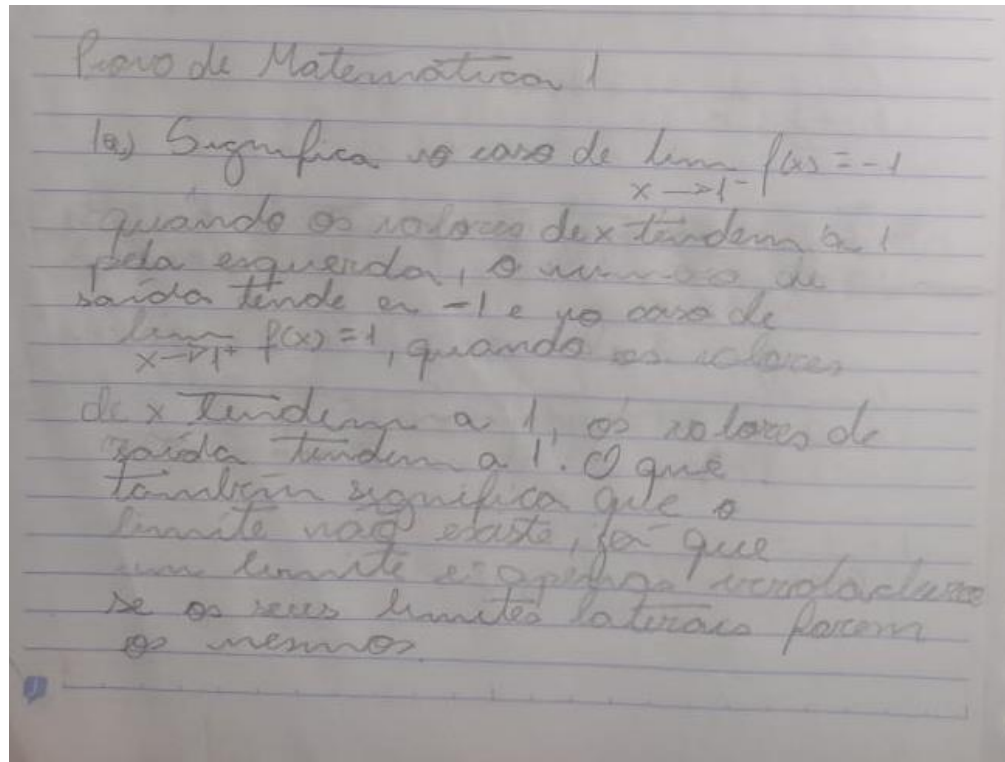 Prova de Matemática 1
1a) Significa no caso de lim f(x) = -1
x → 1⁻
quando os valores de x tendem a 1
pela esquerda, o número de
saída tende a -1 e no caso de
lim f(x) = 1, quando os valores
x → 1⁺
de x tendem a 1, os valores de
saída tendem a 1. O que
também significa que o
limite não existe, já que
um limite é apenas verdadeiro
se os seus limites laterais forem
os mesmos.